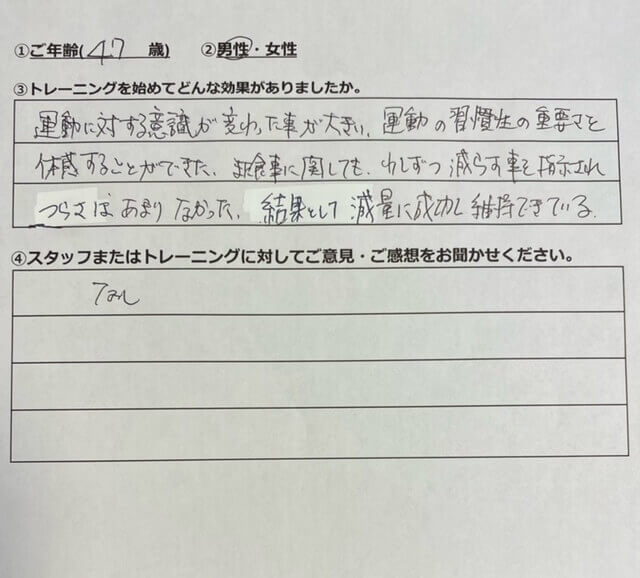 ①ご年齢(47 歳) ②男性・女性
③トレーニングを始めてどんな効果がありましたか。
運動に対する意識が変わった事が大きい、運動の習慣性の重要さを
体感することができた、食事に関しても、少しずつ減らす事を指示され
つらさはあまりなかった、結果として減量に成功し維持できている。
④スタッフまたはトレーニングに対してご意見・ご感想をお聞かせください。
なし